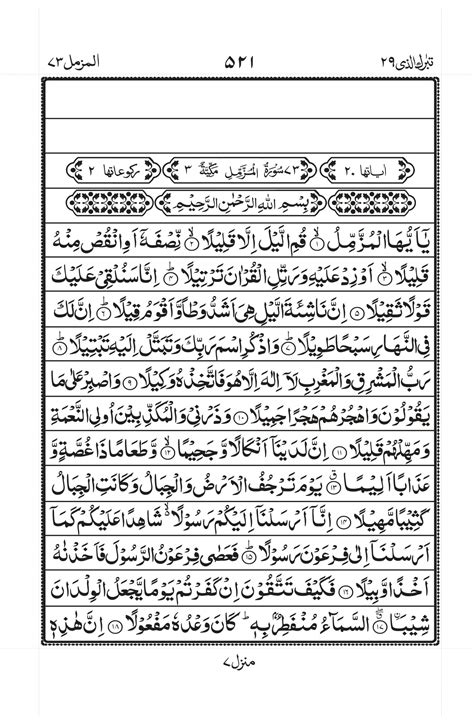 تبٰرك الذی ٢٩ ٥٢١ المزمل ٧٣
اٰیاتها ٢٠ ٧٣ سُوْرَةُ الْمُزَّمِّلِ مَكِّيَّةٌ ٣ ركوعاتها ٢
بِسْمِ اللّٰهِ الرَّحْمٰنِ الرَّحِيْمِ
يٰٓاَيُّهَا الْمُزَّمِّلُ ۙ١ قُمِ الَّيْلَ اِلَّا قَلِيْلًا ۙ٢ نِّصْفَهٗٓ اَوِ انْقُصْ مِنْهُ
قَلِيْلًا ۙ٣ اَوْ زِدْ عَلَيْهِ وَرَتِّلِ الْقُرْاٰنَ تَرْتِيْلًا ؕ٤ اِنَّا سَنُلْقِيْ عَلَيْكَ
قَوْلًا ثَقِيْلًا ٥ اِنَّ نَاشِئَةَ الَّيْلِ هِيَ اَشَدُّ وَطْاً وَّاَقْوَمُ قِيْلًا ؕ٦ اِنَّ لَكَ
فِي النَّهَارِ سَبْحًا طَوِيْلًا ؕ٧ وَاذْكُرِ اسْمَ رَبِّكَ وَتَبَتَّلْ اِلَيْهِ تَبْتِيْلًا ؕ٨
رَبُّ الْمَشْرِقِ وَالْمَغْرِبِ لَاۤ اِلٰهَ اِلَّا هُوَ فَاتَّخِذْهُ وَكِيْلًا ٩ وَاصْبِرْ عَلٰى مَا
يَقُوْلُوْنَ وَاهْجُرْهُمْ هَجْرًا جَمِيْلًا ١٠ وَذَرْنِيْ وَالْمُكَذِّبِيْنَ اُولِي النَّعْمَةِ
وَمَهِّلْهُمْ قَلِيْلًا ١١ اِنَّ لَدَيْنَاۤ اَنْكَالًا وَّجَحِيْمًا ۙ١٢ وَّطَعَامًا ذَا غُصَّةٍ وَّ
عَذَابًا اَلِيْمًا ۗ١٣ يَوْمَ تَرْجُفُ الْاَرْضُ وَالْجِبَالُ وَكَانَتِ الْجِبَالُ
كَثِيْبًا مَّهِيْلًا ١٤ اِنَّاۤ اَرْسَلْنَاۤ اِلَيْكُمْ رَسُوْلًا ۙ شَاهِدًا عَلَيْكُمْ كَمَاۤ
اَرْسَلْنَاۤ اِلٰى فِرْعَوْنَ رَسُوْلًا ؕ١٥ فَعَصٰى فِرْعَوْنُ الرَّسُوْلَ فَاَخَذْنٰهُ
اَخْذًا وَّبِيْلًا ١٦ فَكَيْفَ تَتَّقُوْنَ اِنْ كَفَرْتُمْ يَوْمًا يَّجْعَلُ الْوِلْدَانَ
شِيْبَا ۗۖ١٧ السَّمَآءُ مُنْفَطِرٌۢ بِهٖ ؕ كَانَ وَعْدُهٗ مَفْعُوْلًا ١٨ اِنَّ هٰذِهٖ
منزل ٧